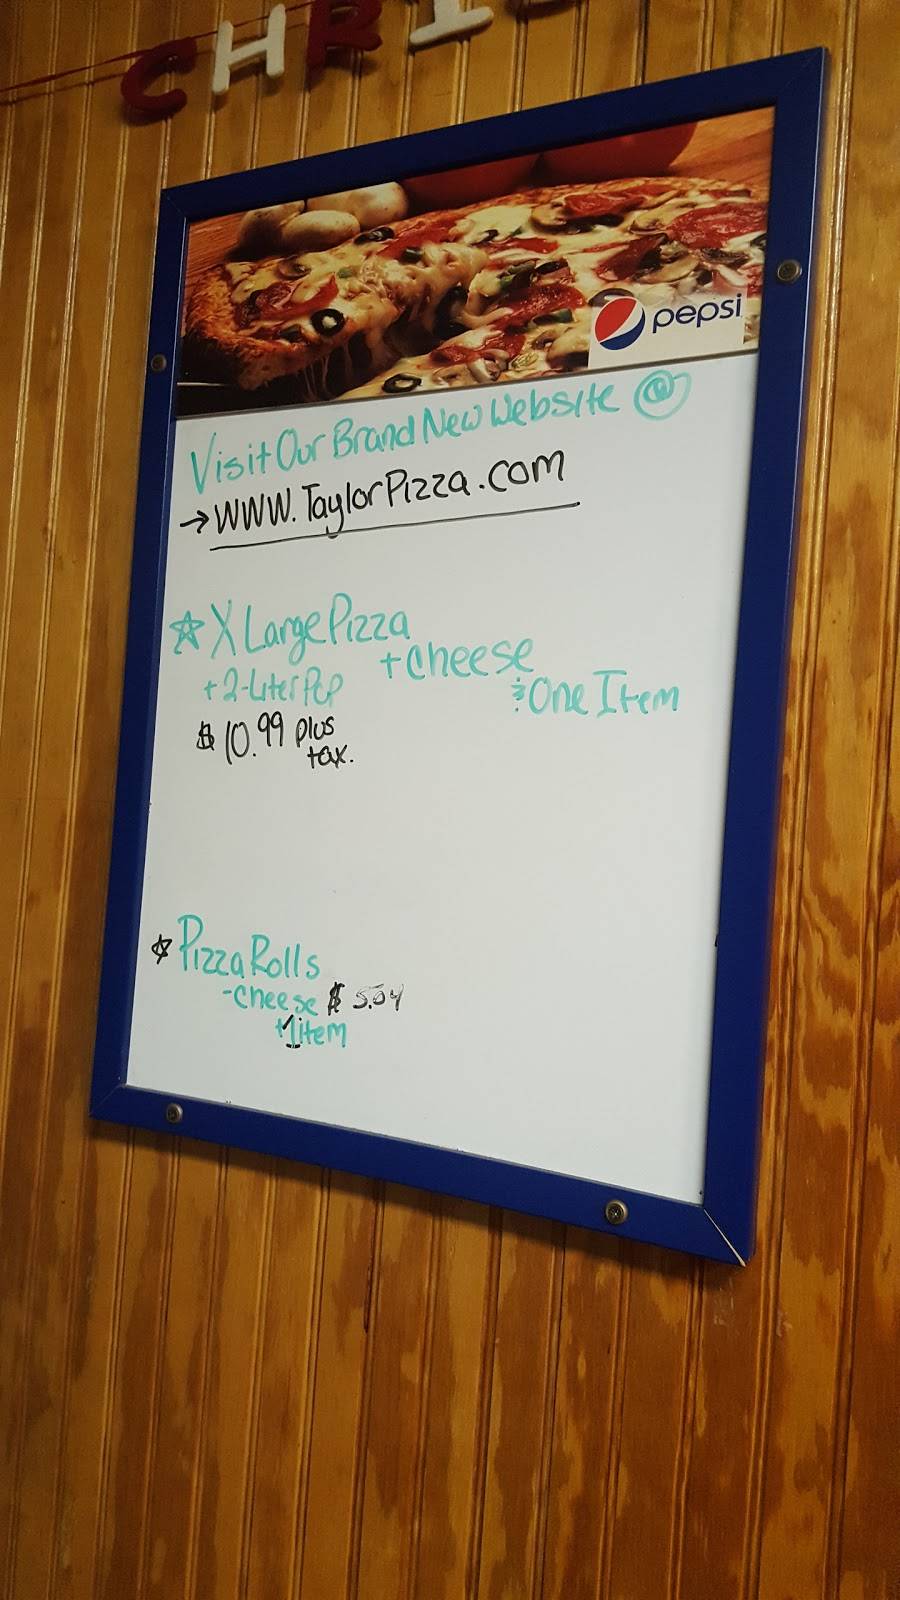 CHRIS
pepsi
Visit Our Brand New Website @
→ WWW.TaylorPizza.com
☆ X Large Pizza
+ Cheese
+ 2-Liter Pop
& One Item
$ 10.99 plus
tax.
☆ Pizza Rolls
- Cheese $ 5.04
+ 1 item